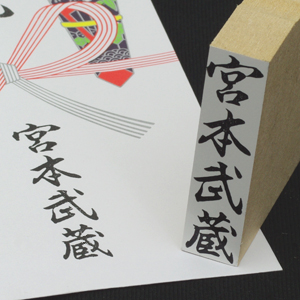 宮本武蔵
宮本武蔵